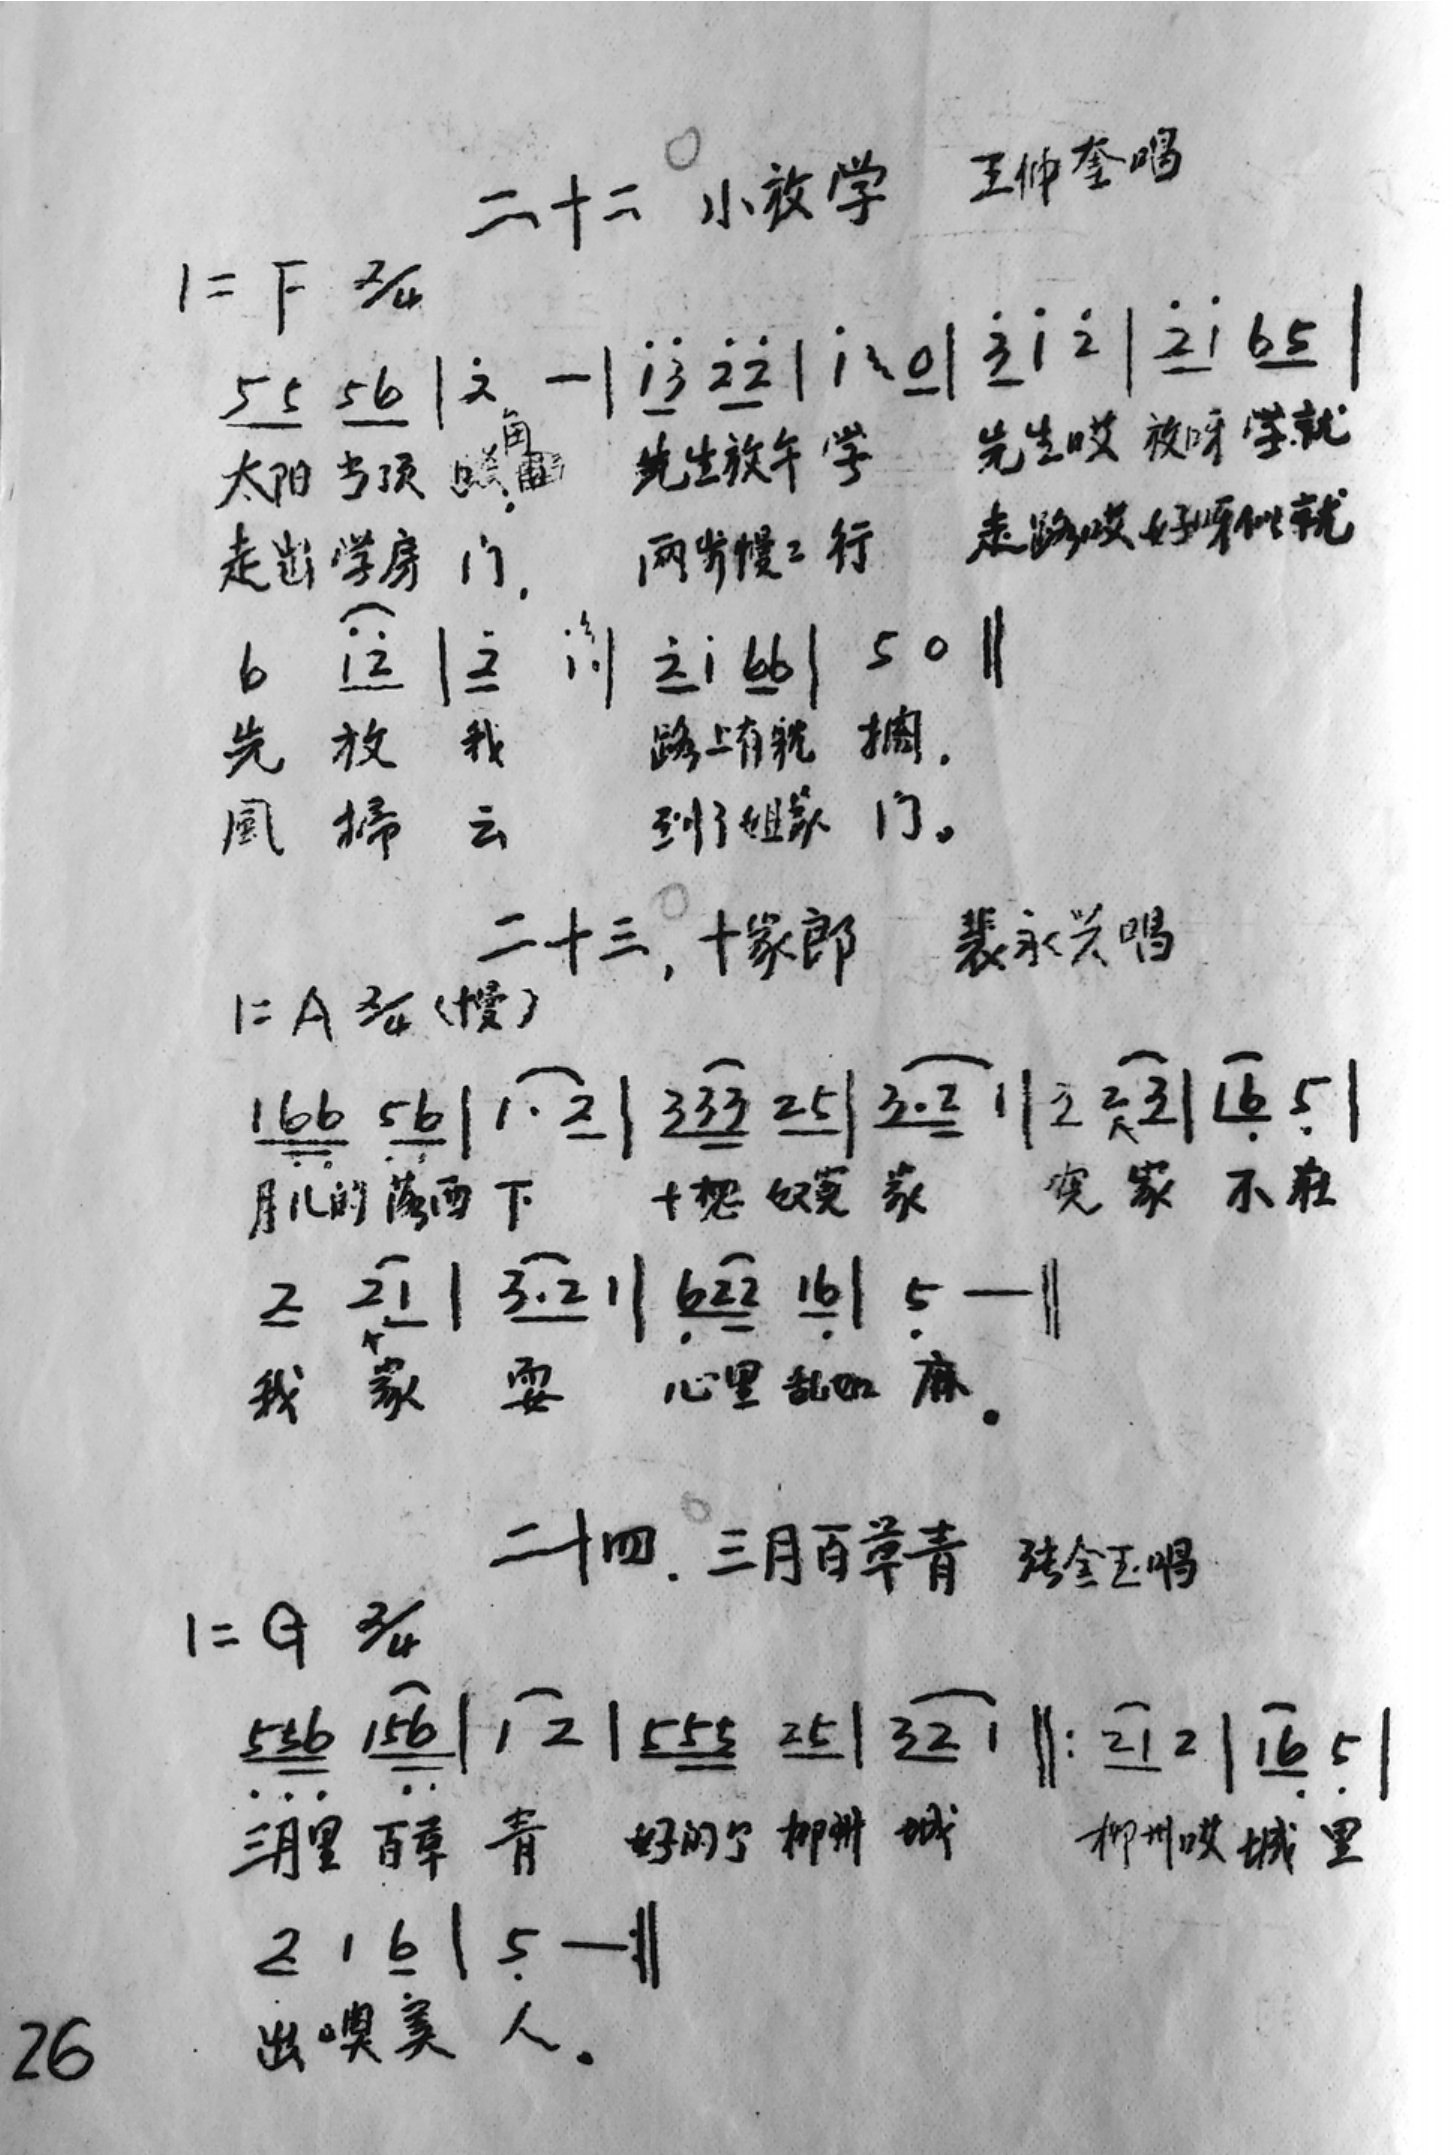 二十二 小放学 王仲奎唱
1=F 2/4
55 56 | 2̇ — | 1̇3̇ 2̇2̇ | 1̇ 0 | 3̇ 1̇ 2̇ | 2̇1̇ 65 |
太阳当顶 角 先生放午学 先生哎放呀学就
走出学房门, 两步慢慢行 走路哎好呀似就
6 1̇2̇ | 2̇ 1̇· | 2̇1̇ 66 | 5 0 ‖
先放我 路上有就搁.
風掃云 到了姐家门。
二十三, 十家郎 裴永兴唱
1=A 2/4 (慢)
166 56 | 1· 2 | 333 25 | 3·2 1 | 2 2 3 | 16 5 |
月儿的落西下 十想奴冤家 冤家不在
2 21 | 3·2 1 | 622 16 | 5 — ‖
我家耍 心里乱如麻.
二十四. 三月百草青 张金玉唱
1=G 2/4
556 156 | 1 2 | 555 25 | 32 1 ‖: 21 2 | 16 5 |
三月里百草青 好的个柳州城 柳州哎城里
2 1 6 | 5 — :‖
出噢美人.
26